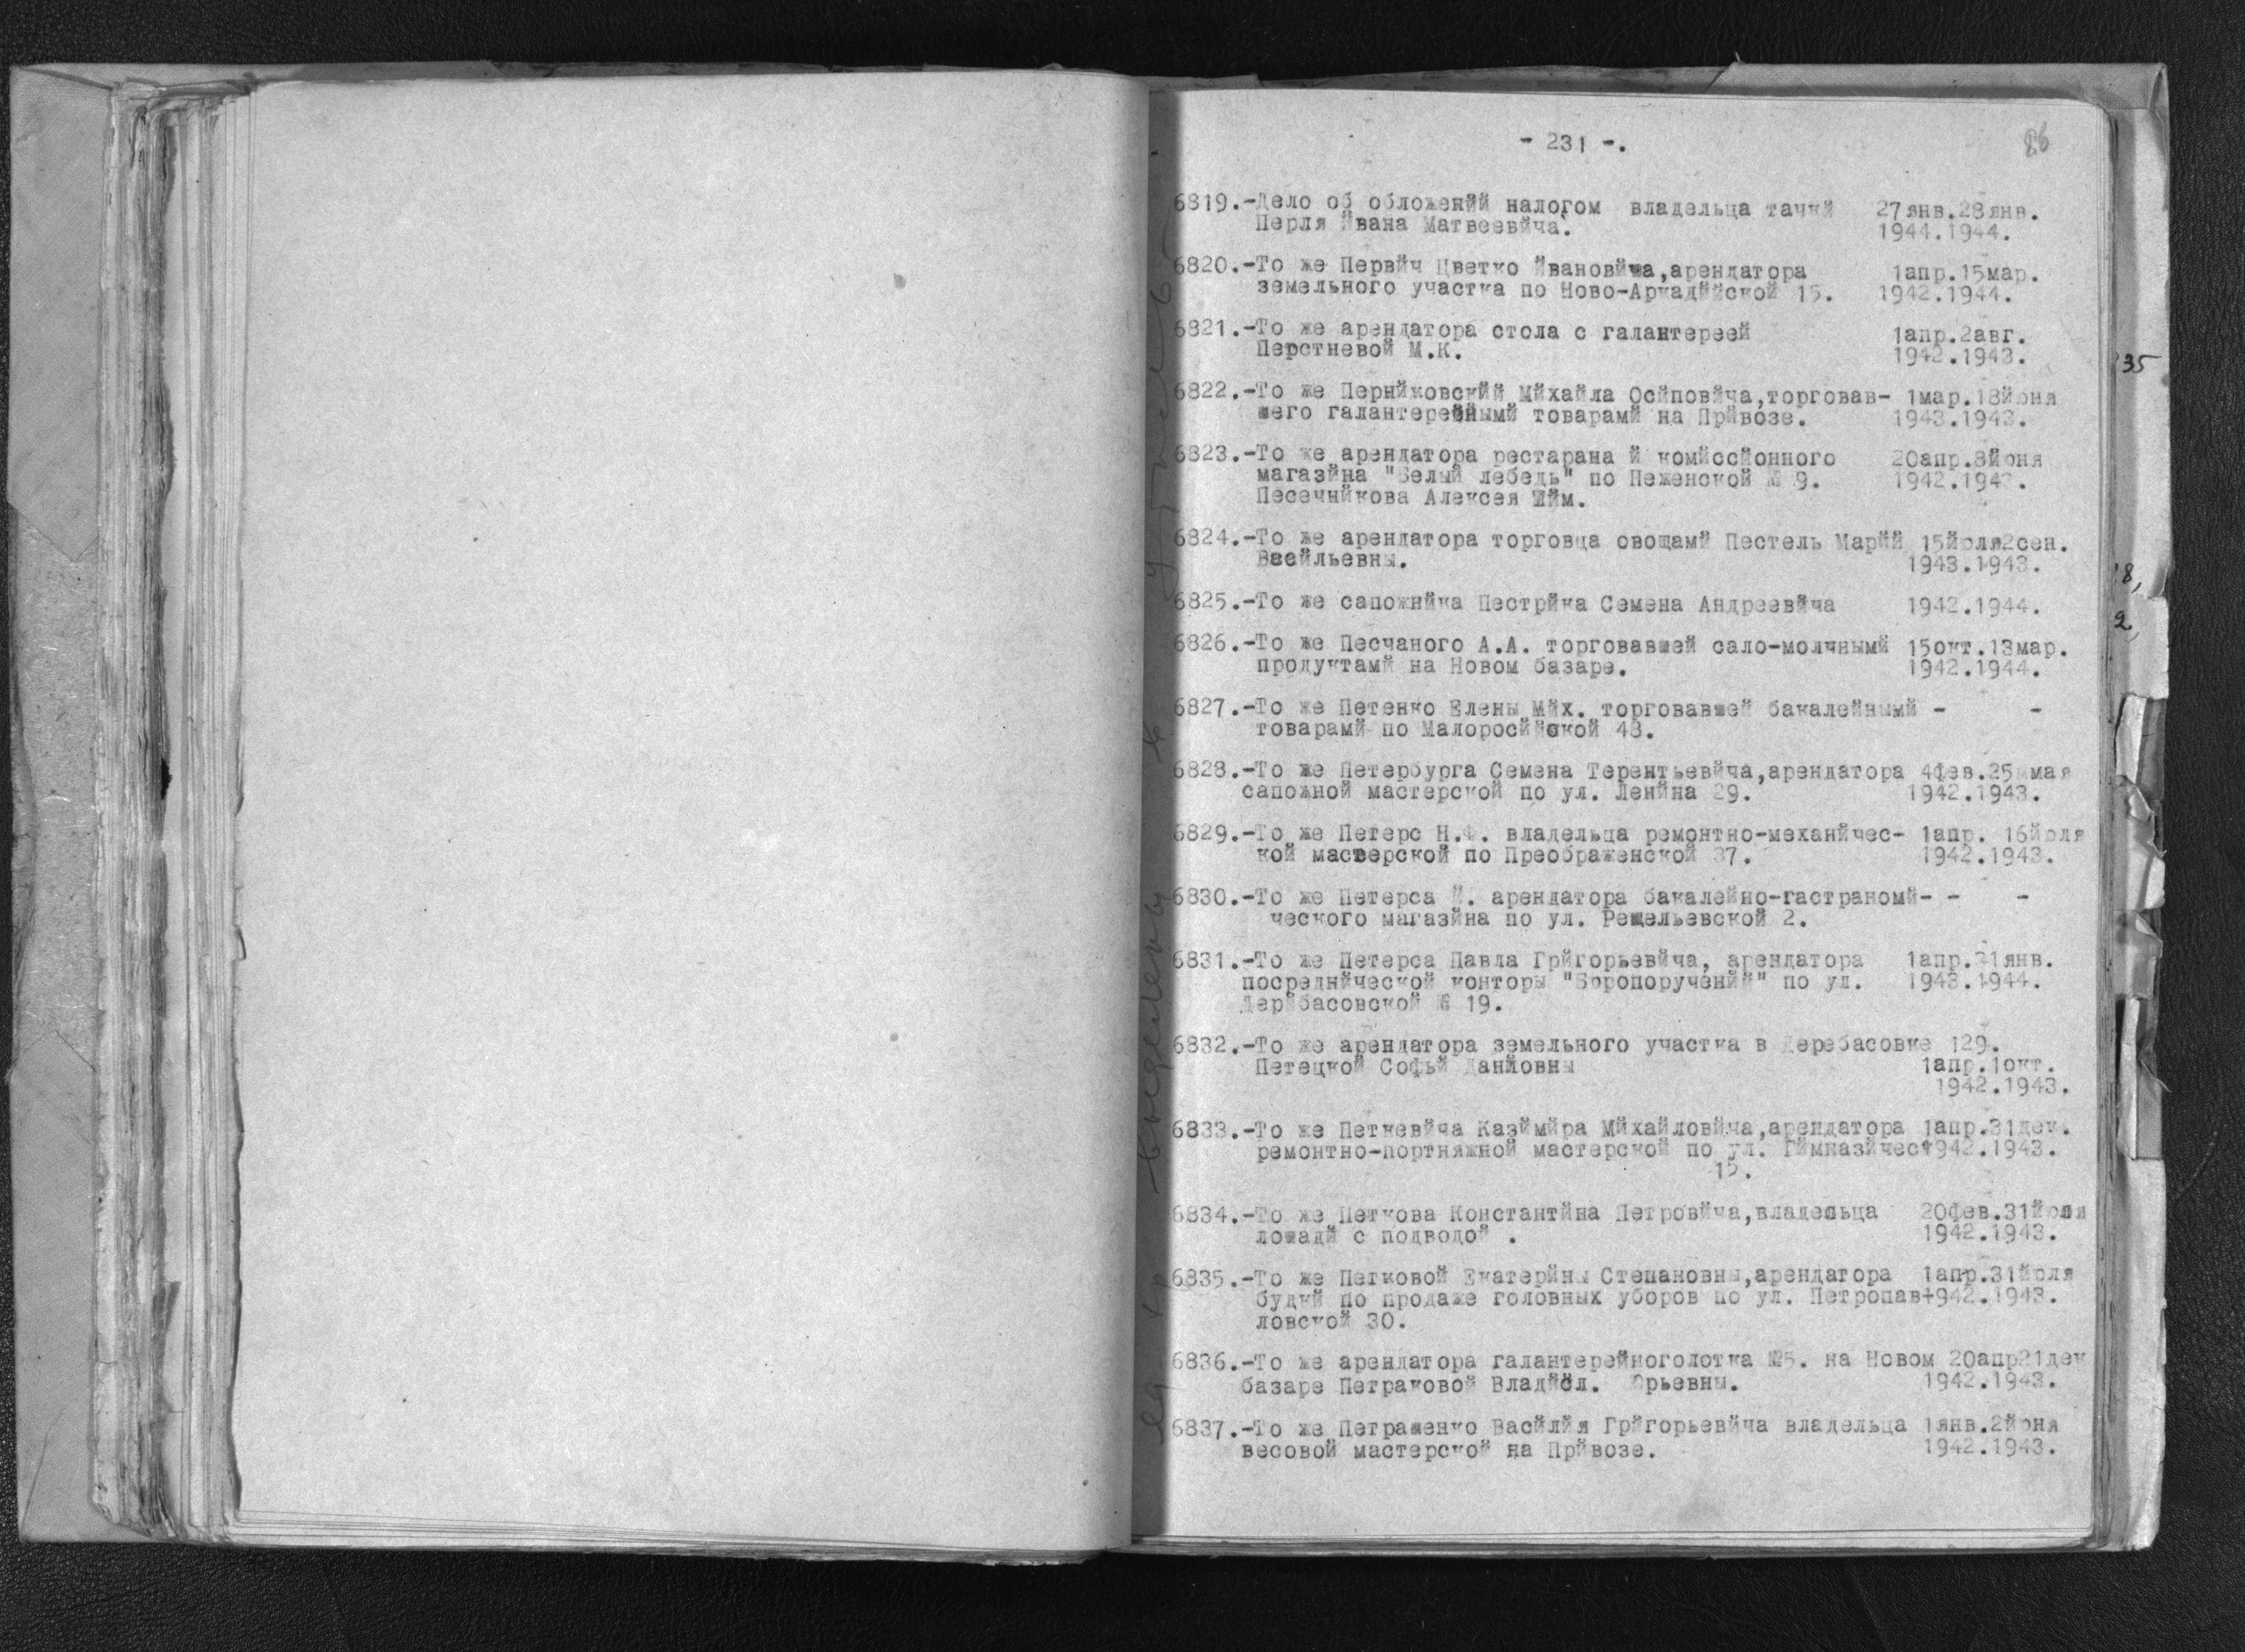 - 231 -.
86
6819.-Дело об обложенйй налогом владельца тачкй 27янв.28янв.
Перля Йвана Матвеевйча. 1944.1944.
6820.-То же Первйч Цветко Йвановйча,арендатора 1апр.15мар.
земельного участка по Ново-Аркадййской 15. 1942.1944.
6821.-То же арендатора стола с галантереей 1апр.2авг.
Перстневой М.К. 1942.1943.
6822.-То же Пернйковскйй Мйхайла Осйповйча,торговав- 1мар.18йюня
шего галантерейнымй товарамй на Прйвозе. 1943.1943.
6823.-То же арендатора рестарана й комйссйонного 20апр.8йюня
магазйна "Белый лебедь" по Неженской № 9. 1942.194
Песечнйкова Алексея
6824.-То же арендатора торговца овощамй Пестель Марйй 15йюля2сен.
Васйльевны. 1943.1943.
6825.-То же сапожнйка Пестрйка Семена Андреевйча 1942.1944.
6826.-То же Песчаного А.А. торговавшей сало-молчнымй 15окт.13мар.
продуктамй на Новом базаре. 1942.1944.
6827.-То же Петенко Елены Мйх. торговавшей бакалейнымй - -
товарамй по Малоросййской 43.
6828.-То же Петербурга Семена Терентьевйча,арендатора 4фев.25 мая
сапожной мастерской по ул. Ленйна 29. 1942.1943.
6829.-То же Петерс Н.Ф. владельца ремонтно-механйчес- 1апр. 16йюля
кой мастерской по Преображенской 37. 1942.1943.
6830.-То же Петерса Й. арендатора бакалейно-гастраномй- - -
ческого магазйна по ул. Рещельевской 2.
6831.-То же Петерса Павла Грйгорьевйча, арендатора 1апр.21янв.
посреднйческой конторы "Боропорученйй" по ул. 1943.1944.
Дерйбасовской № 19.
6832.-То же арендатора земельного участка в Деребасовке 129.
Петецкой Софьй Данйовны 1апр.1окт.
1942.1943.
6833.-То же Петкевйча Казймйра Мйхайловйча,арендатора 1апр.31дек.
ремонтно-портняжной мастерской по ул. Гймназйчест942.1943.
15.
6834.-То же Петкова Константйна Петровйча,владельца 20фев.31йюля
лошадй с подводой . 1942.1943.
6835.-То же Петковой Екатерйны Степановны,арендатора 1апр.31йюля
будкй по продаже головных уборов по ул. Петропав1942.1943.
ловской 30.
6836.-То же арендатора галантерейноголотка №5. на Новом 20апр21дек
базаре Петраковой Владйсл. Юрьевны. 1942.1943.
6837.-То же Петрашенко Васйлйя Грйгорьевйча владельца 1янв.2йюня
весовой мастерской на Прйвозе. 1942.1943.
35
8,
2,